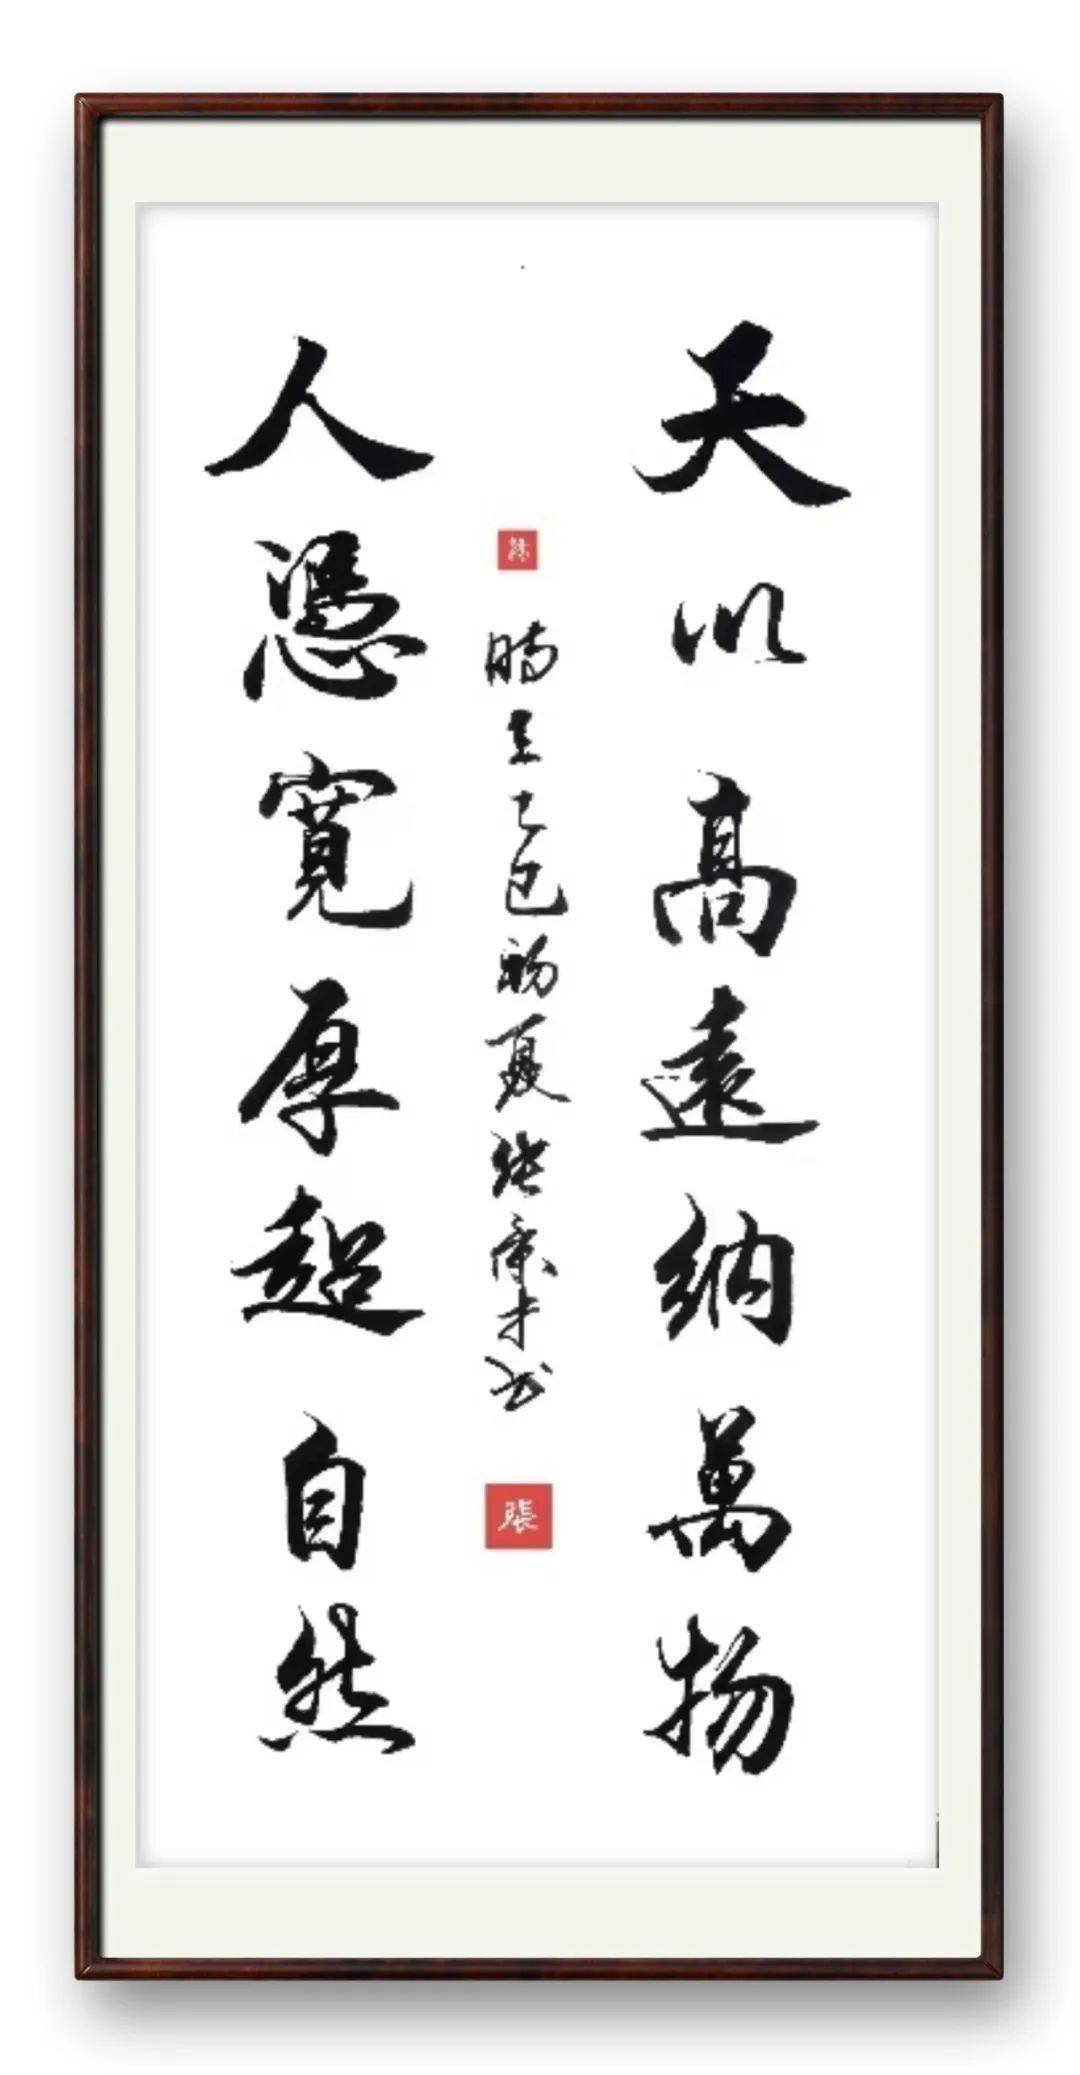 天以高遠納萬物
人憑寬厚超自然
時至乙巳初夏張康才書
張